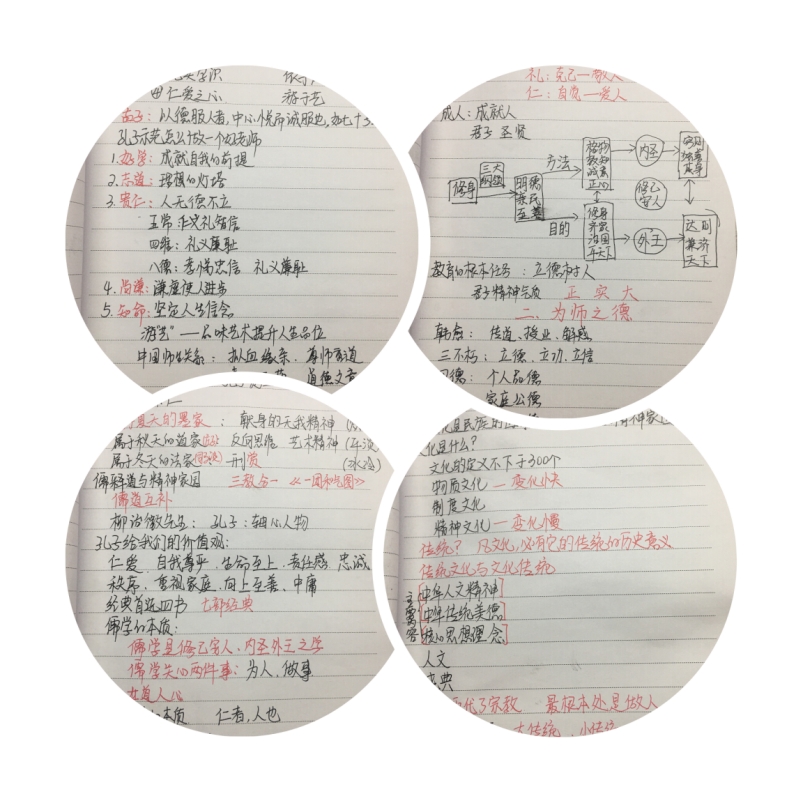 田 仁爱之心 游于艺
孟子：以德服人者，中心悦而诚服也，如七十
孔示范怎么做一个好老师
1.好学：成就自我的前提
2.志道：理想的灯塔
3.贵仁：人无德不立
五常：仁义礼智信
四维：礼义廉耻
八德：孝悌忠信 礼义廉耻
4.尚谦：谦虚使人进步
5.知命：坚定人生信念
"游艺"——品味艺术提升人生品位
中国师生关系：拟血缘亲、尊师重道
道德文章
礼：克己—敬人
仁：自爱—爱人
成人：成就人
君子 圣贤
修身
三大纲领
明德
亲民
至善
方法
目的
格物
致知
诚意
正心
修身
齐家
治国
平天下
内圣
修己
安人
外王
穷则
独善
其身
达则
兼济
天下
教育的根本任务：立德树人
君子精神气质 正 实 大
二、为师之德
韩愈：传道、授业、解惑
三不朽：立德、立功、立信
四德：个人品德
家庭公德
夏天的墨家：献身的无我精神
属于秋天的道家 反向思维 艺术精神
属于冬天的法家 刑
儒释道与精神家园 三教合一《一团和气图》
儒道互补
柳诒徵先生：孔子：轴心人物
孔子给我们的价值观：
仁爱、自我尊严、生命至上、责任感 忠诚
秩序、重视家庭、向上至善、中庸
经典首选四书 七部经典
儒学的本质：
儒学是修己安人、内圣外王之学
儒学关心两件事：为人、做事
人心
本质 仁者，人也
化是什么？
文化的定义不下于300个
物质文化—变化小大
制度文化
精神文化—变化慢
传统？凡文化，必有它的传统的历史意义
传统文化与文化传统
主要内容
[中华人文精神]
[中华传统美德]
核心思想理念]
人文
典
代了宗教 最根本处是做人
大传统、小传统